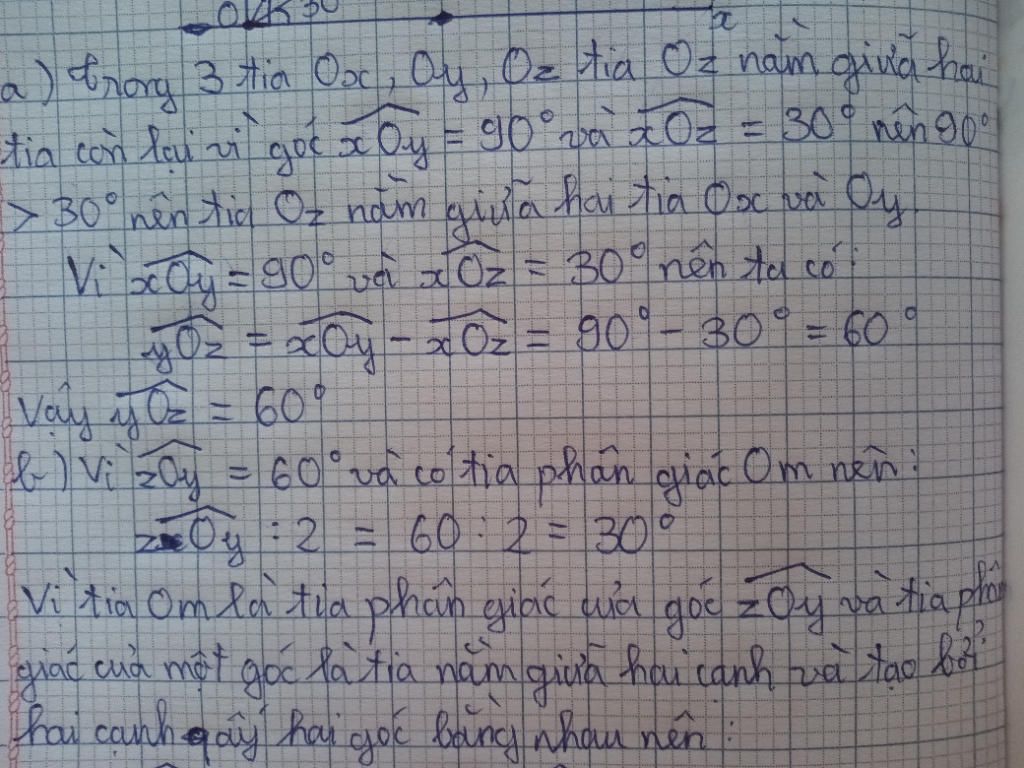 x
a) trong 3 tia Ox, Oy, Oz tia Oz nằm giữa hai
tia còn lại vì góc xOy = 90° và xOz = 30° nên 90°
> 30° nên tia Oz nằm giữa hai tia Ox và Oy
Vì xOy = 90° và xOz = 30° nên ta có:
yOz = xOy - xOz = 90° - 30° = 60°
Vậy yOz = 60°
b) Vì zOy = 60° và có tia phân giác Om nên:
zOy : 2 = 60 : 2 = 30°
Vì tia Om là tia phân giác của góc zOy và tia phân
giác của một góc là tia nằm giữa hai cạnh và tạo bởi
hai cạnh ấy hai góc bằng nhau nên: